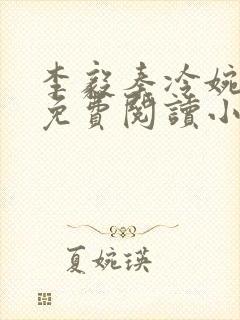 李毅秦冷婉
免費閱讀小
夏婉瑛